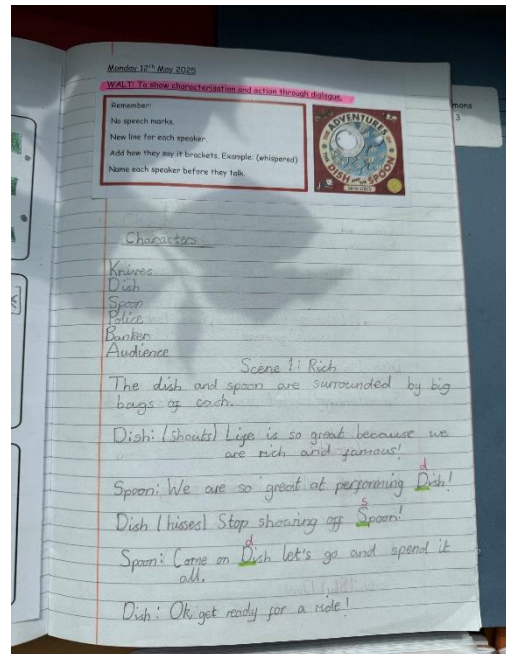 Monday 12th May 2025
WALT: To show characterisation and action through dialogue.
Remember:
No speech marks.
New line for each speaker.
Add how they say it brackets. Example: (whispered)
Name each speaker before they talk.
THE ADVENTURES
OF THE DISH AND THE SPOON
MINI GREY
mons
3
Characters
Knives
Dish
Spoon
Police
Banker
Audience
Scene 1: Rich
The dish and spoon are surrounded by big
bags of cash.
Dish: (shouts) Life is so great because we
are rich and famous!
d
Spoon: We are so great at performing Dish!
s
Dish (hisses) Stop showing off Spoon!
d
Spoon: Come on Dish let's go and spend it
all.
Dish: Ok get ready for a ride!